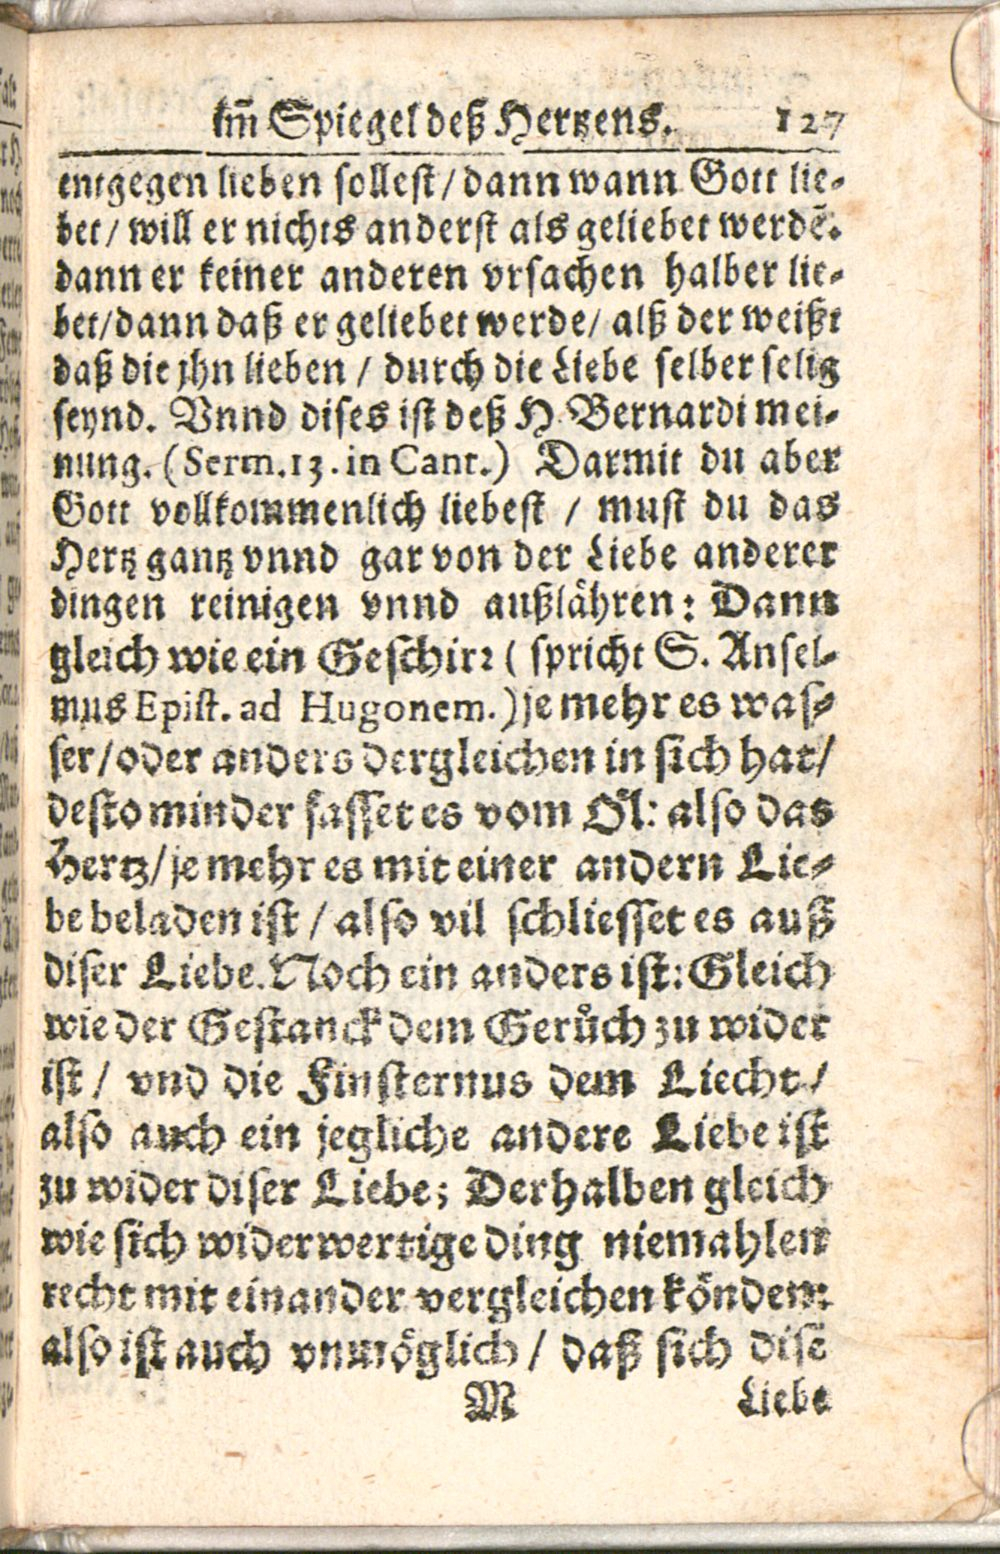 im̃ Spiegel deß Hertzens. 127
entgegen lieben sollest / dann wann Gott lie-
bet / will er nichts anderst als geliebet werdẽ.
dann er keiner anderen vrsachen halber lie-
bet / dann daß er geliebet werde / alß der weißt
daß die jhn lieben / durch die Liebe selber selig
seynd. Vnnd dises ist deß H. Bernardi mei-
nung. (Serm. 13. in Cant.) Darmit du aber
Gott vollkommenlich liebest / must du das
Hertz gantz vnnd gar von der Liebe anderer
dingen reinigen vnnd außlähren: Dann
gleich wie ein Geschirr (spricht S. Ansel-
mus Epist. ad Hugonem.) je mehr es was-
ser / oder anders dergleichen in sich hat /
desto minder fasset es vom Öl: also das
Hertz / je mehr es mit einer andern Lie-
be beladen ist / also vil schliesset es auß
diser Liebe. Noch ein anders ist: Gleich
wie der Gestanck dem Gerůch zu wider
ist / vnd die Finsternus dem Liecht /
also auch ein jegliche andere Liebe ist
zu wider diser Liebe; Derhalben gleich
wie sich widerwertige ding niemahlen
recht mit einander vergleichen könden:
also ist auch vnmöglich / daß sich dise
M Liebe